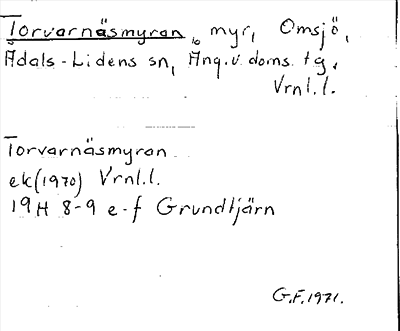 Torvarnäsmyran, myr, Omsjö,
Ådals-Lidens sn, Ång.v. doms. tg,
Vrnl.l.
Torvarnäsmyran
ek(1970) Vrnl.l.
19H 8-9 e-f Grundtjärn
G.F. 1971.